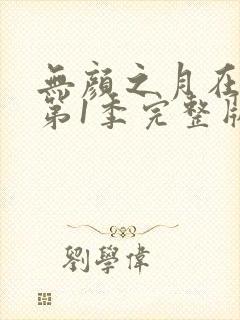 無顏之月在
第1季完整版
劉學偉